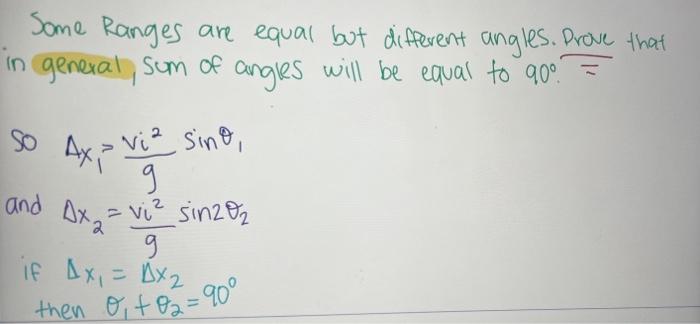 Some Ranges are equal but different angles. Prove that
in general, sum of angles will be equal to 90°. =
So Δx₁ = vi²/g sinθ₁
and Δx₂ = vi²/g sin2θ₂
if Δx₁ = Δx₂
then θ₁ + θ₂ = 90°